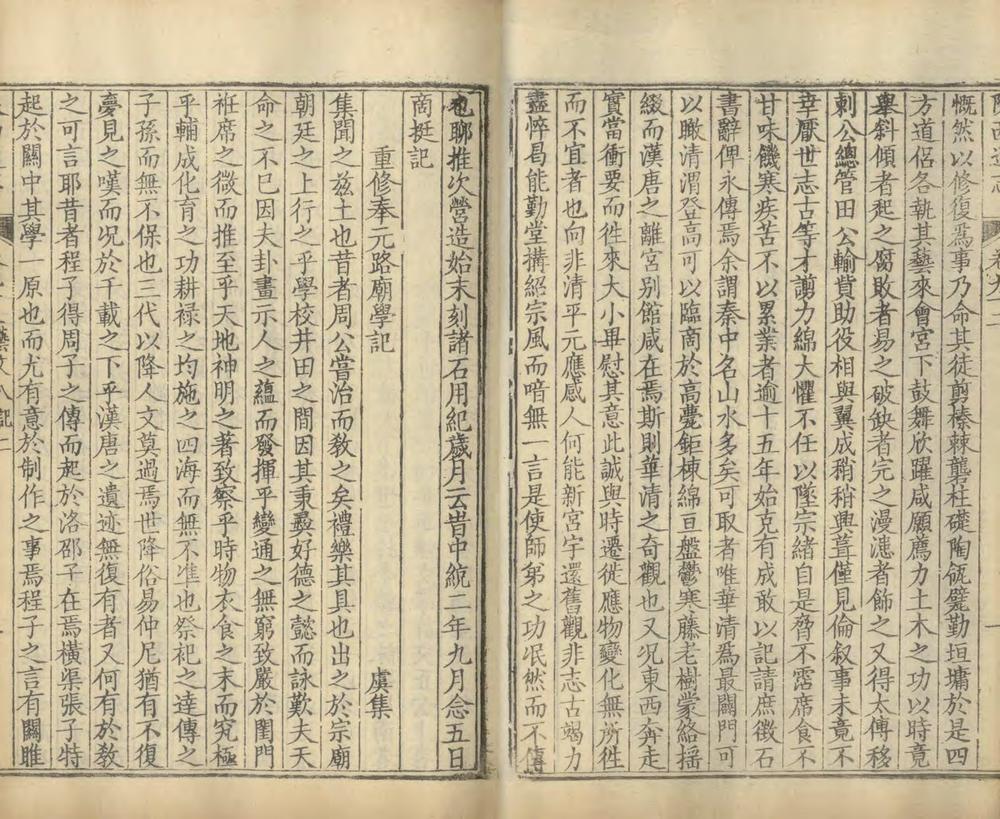 陝西通志 卷九
慨然以修復爲事乃命其徒剪榛棘礱柱礎陶瓴甓勤垣墉於是四
方道侣各執其藝來會宮下鼓舞欣躍咸願薦力土木之功以時竟
舉斜傾者起之腐敗者易之破缺者完之漫漶者飾之又得太傅移
剌公總管田公輸貲助役相與翼成稍稍興葺僅見倫叙事未竟不
幸厭世志古等才謭力綿大懼不任以墜宗緒自是脅不霑席食不
甘味饑寒疾苦不以累業者逾十五年始克有成敢以記請庶徵石
書辭俾永傳焉余謂秦中名山水多矣可取者唯華清爲最闢門可
以瞰清渭登高可以臨商於高甍鉅棟綿亘盤鬱寒藤老樹蒙絡揺
綴而漢唐之離宮别館咸在焉斯則華清之奇觀也又况東西奔走
實當衝要而徃來大小畢慰其意此誠與時遷徙應物變化無所徃
而不宜者也向非清平元應感人何能新宮宇還舊觀非志古竭力
盡悴曷能勤堂搆紹宗風而喑無一言是使師弟之功泯然而不傳
也聊推次營造始末刻諸石用紀歲月云昔中統二年九月念五日
商挺記
重修奉元路廟學記
虞集
集聞之兹土也昔者周公嘗治而敎之矣禮樂其具也出之於宗廟
朝廷之上行之乎學校井田之間因其秉彛好德之懿而詠歎夫天
命之不已因夫卦畫示人之蘊而發揮乎變通之無窮致嚴於閨門
袵席之微而推至乎天地神明之著致察乎時物衣食之末而究極
乎輔成化育之功耕禄之均施之四海而無不凖也祭祀之達傳之
子孫而無不保也三代以降人文莫過焉世降俗易仲尼猶有不復
夢見之嘆而况於千載之下乎漢唐之遺迹無復有者又何有於敎
之可言耶昔者程子得周子之傳而起於洛邵子在焉横渠張子特
起於關中其學一原也而尤有意於制作之事焉程子之言有關雎
藝文八 記二